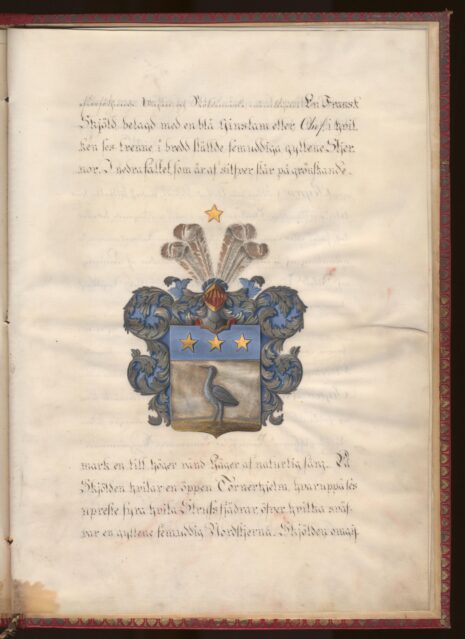 En Fransk
Skjöld belagd med en blå Ginstam eller Chef, i hvil
ken ses trenne i bredd ställde femuddiga gyllene Stjer
nor. I nedra fältet som är af silfver står på grönskande
mark en till höger vänd Häger af naturlig färg. På
Skjölden hvilar en öppen Tornerhjelm, hvaruppå ses
upreste fyra hvita Strutsfjädrar, öfver hvilka sväf-
var en gyllene femuddig Nordstjerna. Skjölden omgif